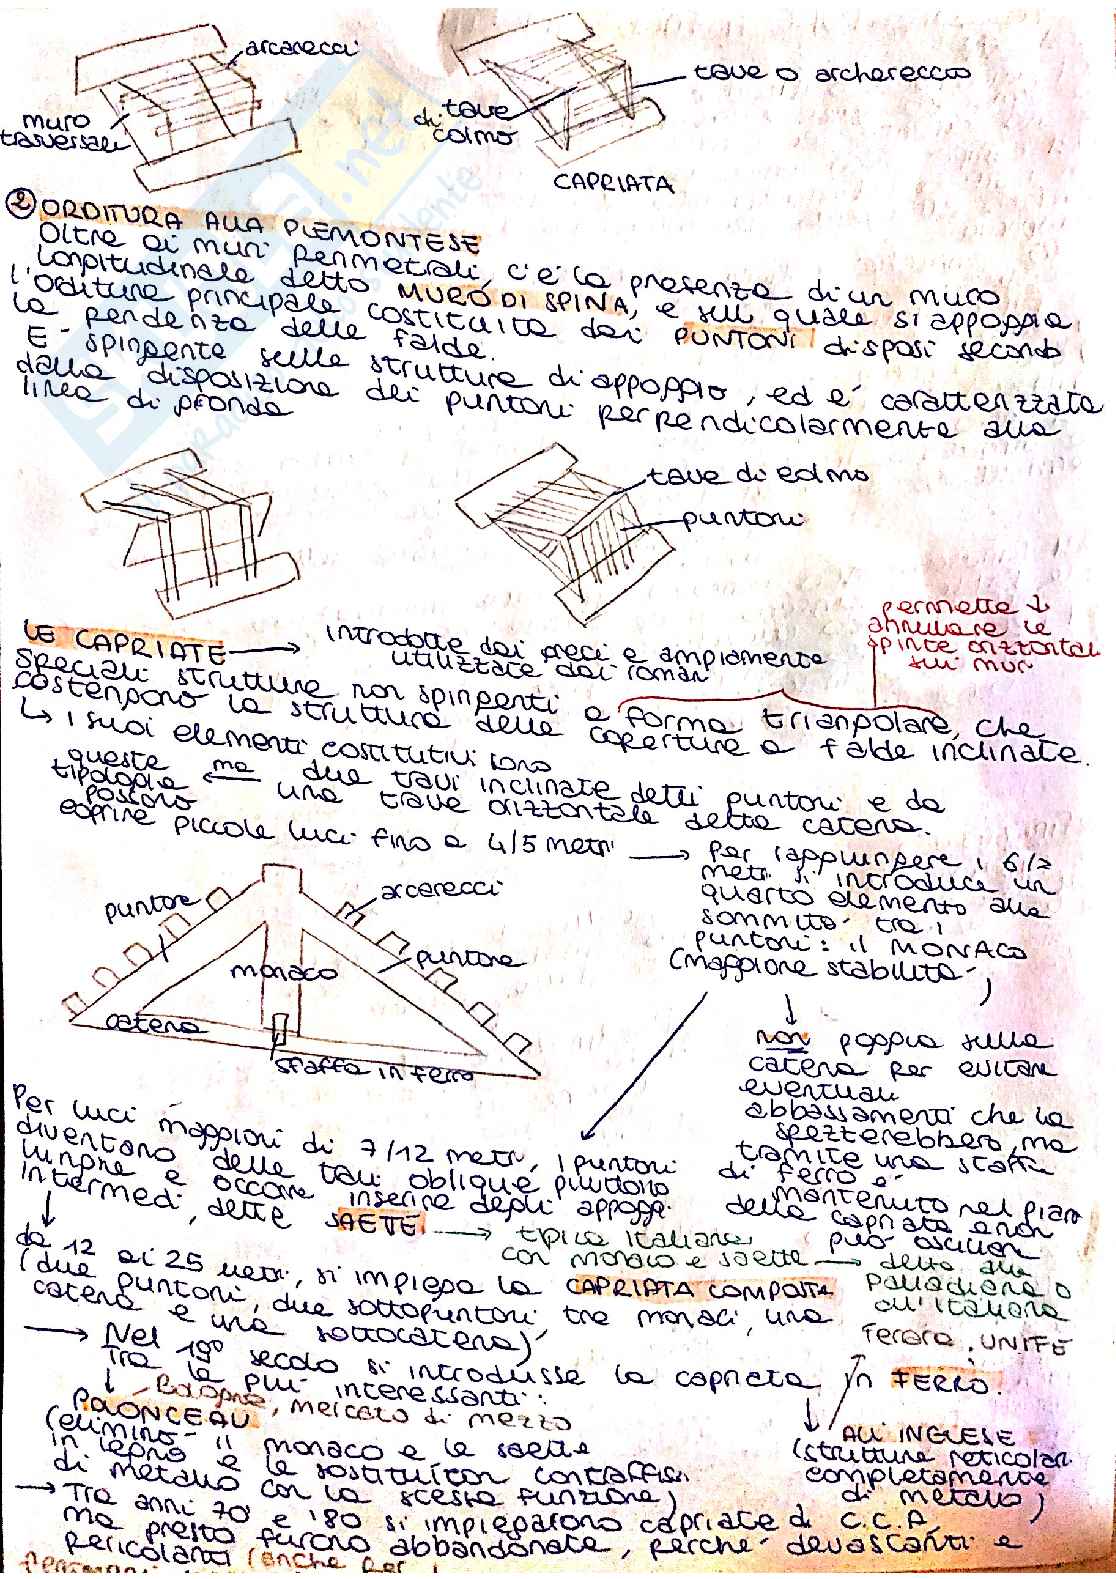 arcarecci
trave o archereccio
muro
trasversale
trave
di colmo
CAPRIATA
2 ORDITURA ALLA PIEMONTESE
Oltre ai muri perimetrali, c'è la presenza di un muro
longitudinale detto MURO DI SPINA, e sul quale si appoggia
l'orditura principale costituita dai PUNTONI disposi secondo
la pendenza delle falde.
E' spingente sulle strutture di appoggio, ed e' caratterizzata
dalla disposizione dei puntoni perpendicolarmente alla
linea di gronda
trave di colmo
puntoni
permette di
annullare le
spinte orizzontali
sui muri
LE CAPRIATE → introdotte dai greci e ampiamente
utilizzate dai romani
speciali strutture non spingenti a forma triangolare, che
costengono la struttura delle coperture a falde inclinate.
↳ i suoi elementi costitutivi sono
due travi inclinate detti puntoni e da
una trave orizzontale detta catena.
queste ma
tipologie
possono
coprire piccole luci fino a 4/5 metri → Per raggiungere i 6/7
metri si introduce un
quarto elemento alla
sommità tra i
puntoni: il MONACO
(maggiore stabilità)
puntone
arcarecci
monaco
puntone
catena
staffa in ferro
non poggia sulla
catena per evitare
eventuali
abbassamenti che la
spezzerebbero, ma
tramite una staffa
di ferro e'
mantenuto nel piano
della capriata e non
può oscillare
Per luci maggiori di 7/12 metri, i puntoni
diventano delle travi oblique piuttosto
lunghe e occorre inserire degli appoggi
intermedi, dette SAETTE → tipica italiana
con monaco e saette → detta alla
palladiana o
all'italiana
da 12 ai 25 metri, si impiega la CAPRIATA COMPOSTA
(due puntoni, due sottopuntoni tre monaci, una
catena e una sottocatena)
Ferrara, UNIFE
→ Nel 19º secolo si introdusse la capriata in FERRO.
Tra le più interessanti:
Bologna, mercato di mezzo
POLONCEAU
(elimino' il monaco e le saette
in legno e le sostituì con contraffissi
di metallo con la stessa funzione)
ALL'INGLESE
(strutture reticolari
completamente
di metallo)
→ Tra anni '70 e '80 si impiegarono capriate di C.C.A,
ma presto furono abbandonate, perchè devastanti e
pericolanti (anche per